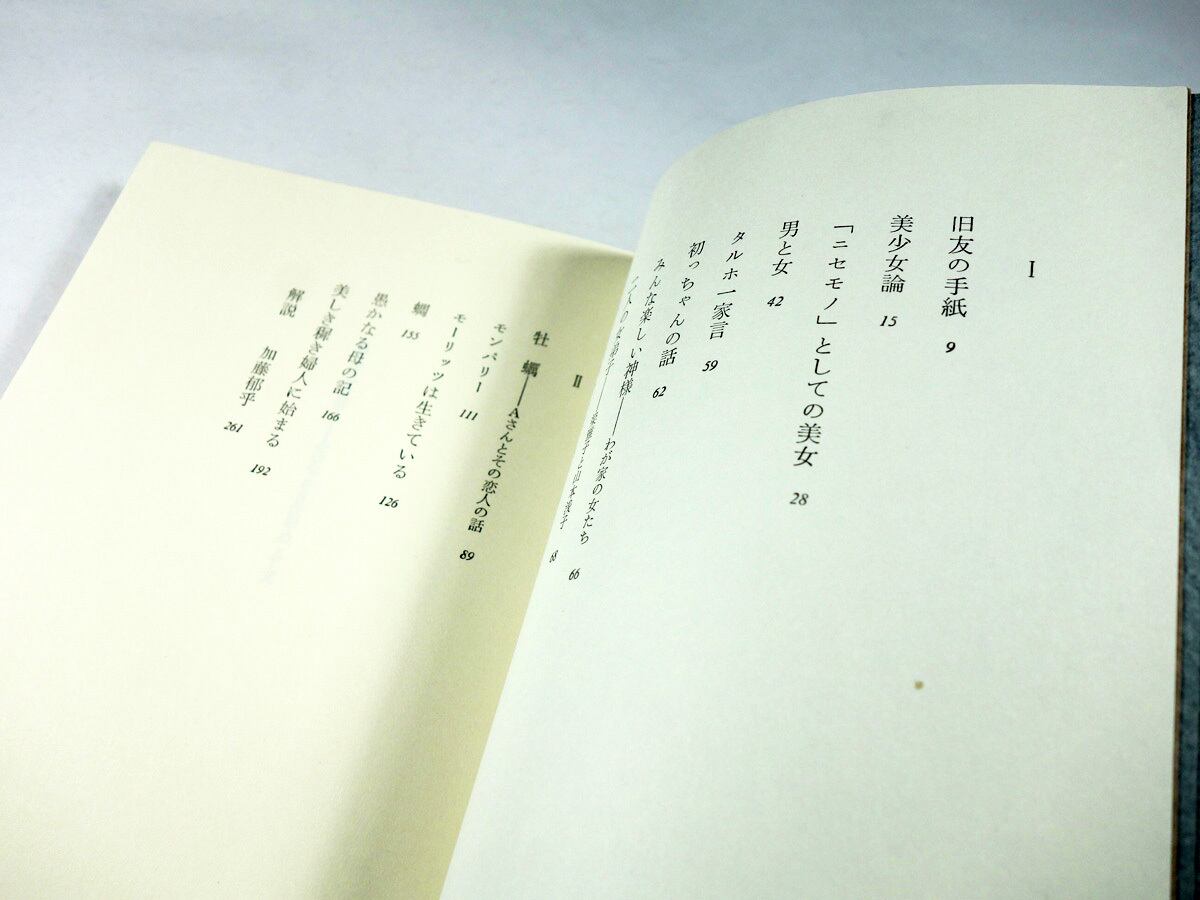 I
旧友の手紙 9
美少女論 15
「ニセモノ」としての美女 28
男と女 42
タルホ一家言 59
初っちゃんの話 62
みんな楽しい神様――わが家の女たち 66
人の女弟子―― 子と山本浅子 68
II
牡蠣――Aさんとその恋人の話 89
モンパリー 111
モーリッツは生きている 126
蠣 155
愚かなる母の記 166
美しき穉き婦人に始まる 192
解説 加藤郁乎 261